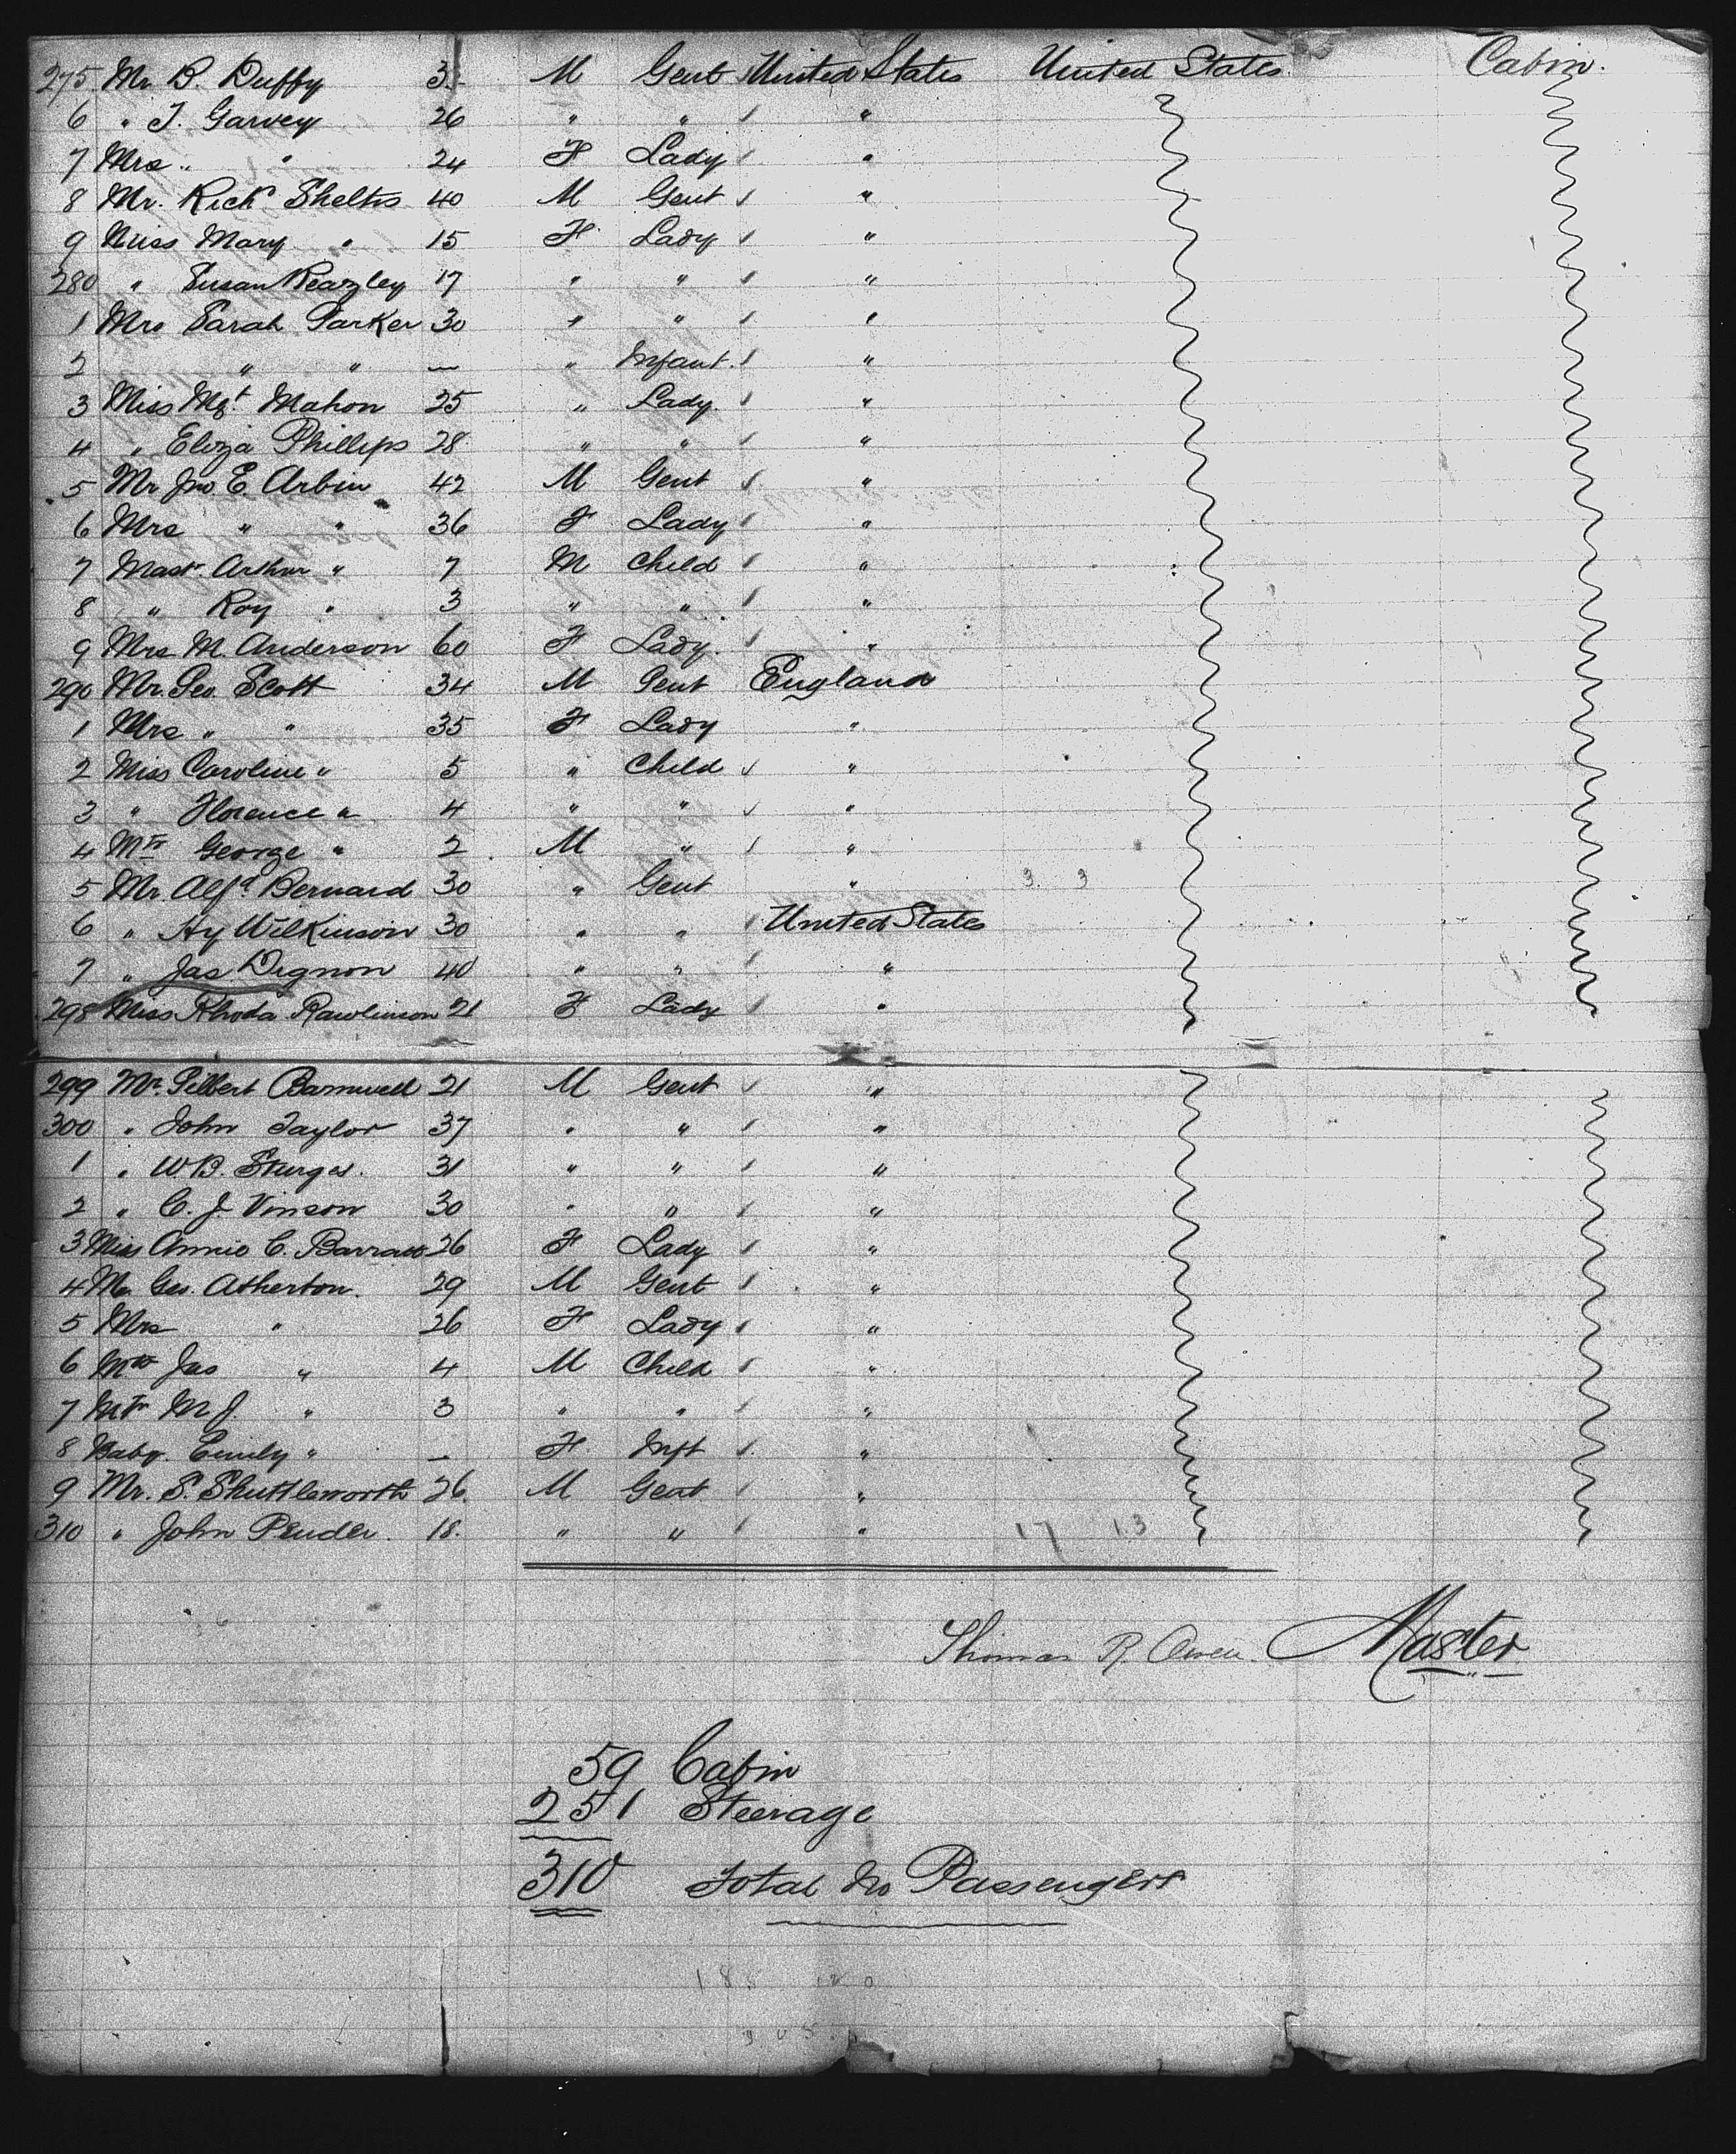 275 Mr. B. Duffy 3- M Gent United States United States Cabin.
6 " T. Garvey 26 " " "
7 Mrs " " 24 F Lady "
8 Mr. Rich^d 40 M Gent "
9 Miss Mary " 15 F Lady "
280 " Susan 17 " " "
1 Mrs Sarah Parker 30 " " "
2 " " — " Infant. "
3 Miss Mgt. Mahon 25 " Lady. "
4 " Eliza Phillips 28 " " "
5 Mr Jno. E. Arbin 42 M Gent "
6 Mrs " " 36 F Lady "
7 Mastr. Arthur " 7 M Child "
8 " Roy " 3 " " "
9 Mrs M. Anderson 60 F Lady. "
290 Mr. Geo. Scott 34 M Gent England
1 Mrs " " 35 F Lady "
2 Miss Caroline " 5 " Child "
3 " Florence " 4 " " "
4 Mtr George " 2 M " "
5 Mr. Alfd. Bernard 30 " Gent " 3 3
6 " Hy Wilkinson 30 " " United States
7 " Jas Dignon 40 " " "
298 Miss Rhoda Rawlinson 21 F Lady "
299 Mr. Barnwell 21 M Gent "
300 " John Taylor 37 " " "
1 " W.B. Sturges. 31 " " "
2 " C. J. Vinson 30 " " "
3 Miss Annie C. 26 F Lady "
4 Mr. Geo. Atherton. 29 M Gent "
5 Mrs " 26 F Lady "
6 Mtr Jas " 4 M Child "
7 Mtr M J. " 3 " " "
8 Baby. Emily " — F. Inft "
9 Mr. S. Shuttleworth 26. M Gent "
310 " John Pender. 18. " " " 17 13
Thomas R. Owen. Master
59 Cabin
251 Steerage
310 Total No Passengers